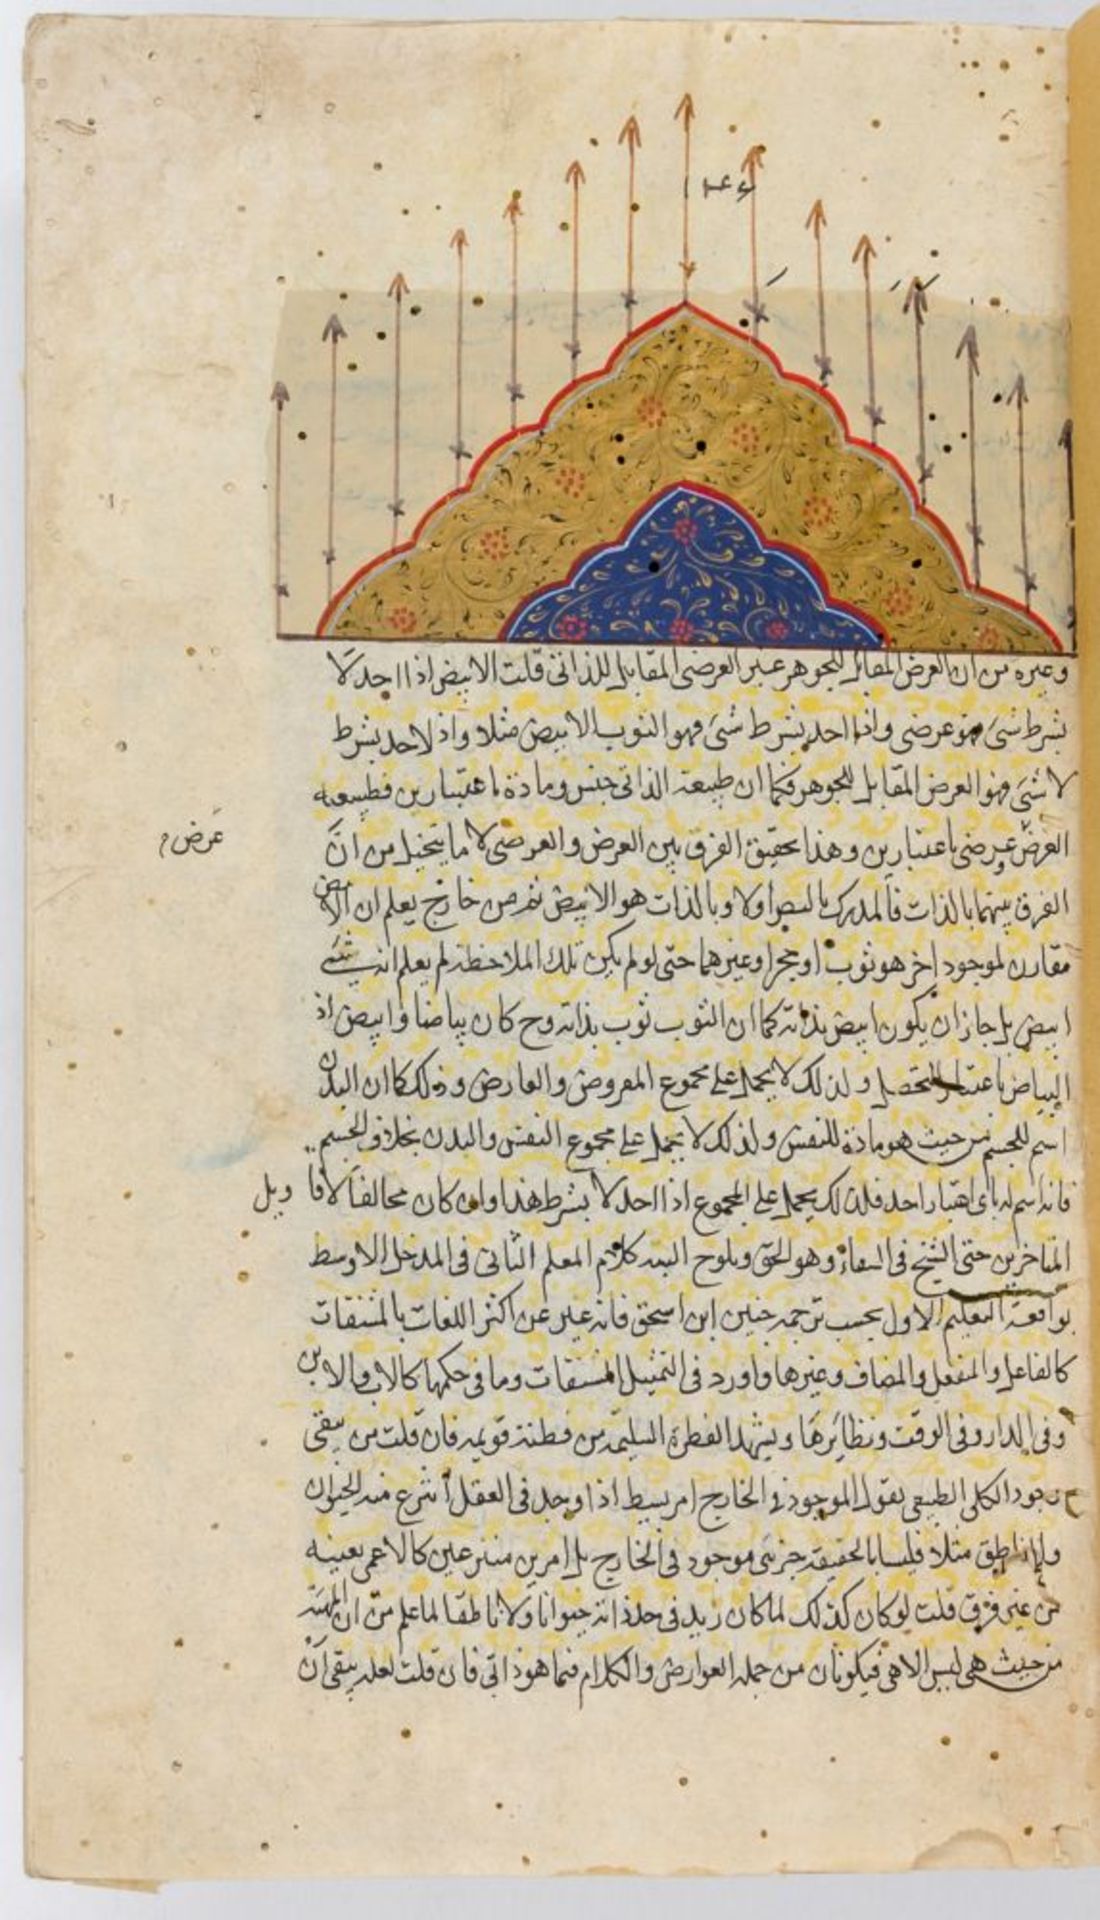 وغيره من ان العرض المقابل للجوهر غير العرضى المقابل للذاتى قلت الابيض اذا اخد لا
بشرط شئ فهو عرضى واذا اخد بشرط شئ فهو الثوب الابيض مثلا واذ لاحد بشرط
لا شئ فهو العرض المقابل للجوهر فكما ان طبيعة الذاتى جنس ومادة باعتبارين فطبيعه
العرض وعرضى باعتبارين وهذا تحقيق الفرق بين العرض والعرضى لا ما يتخيل من انّ
عرض م
الفرق بينهما بالذات فالمدرك بالبصر اولا وبالذات هو الابيض ثم من خارج يعلم ان الابيض
مقارن لموجود اخر هو ثوب او حجر او غيرهما حتى لو لم يكن تلك الملاحظة لم يعلم انه شئ
ابيض بل جاز ان يكون ابيض بذاته كما ان الثوب ثوب بذاته وح كان بياضا وابيض اذ
البياض باعتبار التحصل ولذلك لا يحمل على مجموع المعروض والعارض وذلك كما ان البدن
اسم للجسم من حيث هو مادة للنفس ولذلك لا يحمل على مجموع النفس والبدن بخلاف الجسم
فانه اسم له باى اعتبار اخد فلذلك يحمل على المجموع اذا اخد لا بشرط هذا وان كان مخالفا لاقا
ويل
المتاخرين حتى الشيخ فى الشفاء وهو الحق ويلوح اليه كلام المعلم الثانى فى المدخل الاوسط
بواقعة التعليم الاول بحسب ترجمه حنين ابن اسحق فانه عبر عن اكثر اللغات بالمشتقات
كالفاعل والمنفعل والمضاف وغيرها واورد فى التمثيل المشتقات وما فى حكمها كالاب والابن
وفى الدار وفى الوقت ونظائرها ويشهد الفطرة السليمه من فطنة قويمه فان قلت من ينفى
وجود الكلى الطبيعى يقول الموجود فى الخارج امر بسيط اذا وجد فى العقل انتزع منه الحيوان
والناطق مثلا فليسا بالحقيقة جزئى موجود فى الخارج بل امرين منتزعين كالاعمى بعينه
من غير فرق قلت لو كان كذلك لما كان زيد فى حد ذاته حيوانا ولا ناطقا لما علم من ان المهية
من حيث هى ليس الا هى فيكونان من جمله العوارض والكلام فيما هو ذاتى فان قلت لعله يبقى انّ